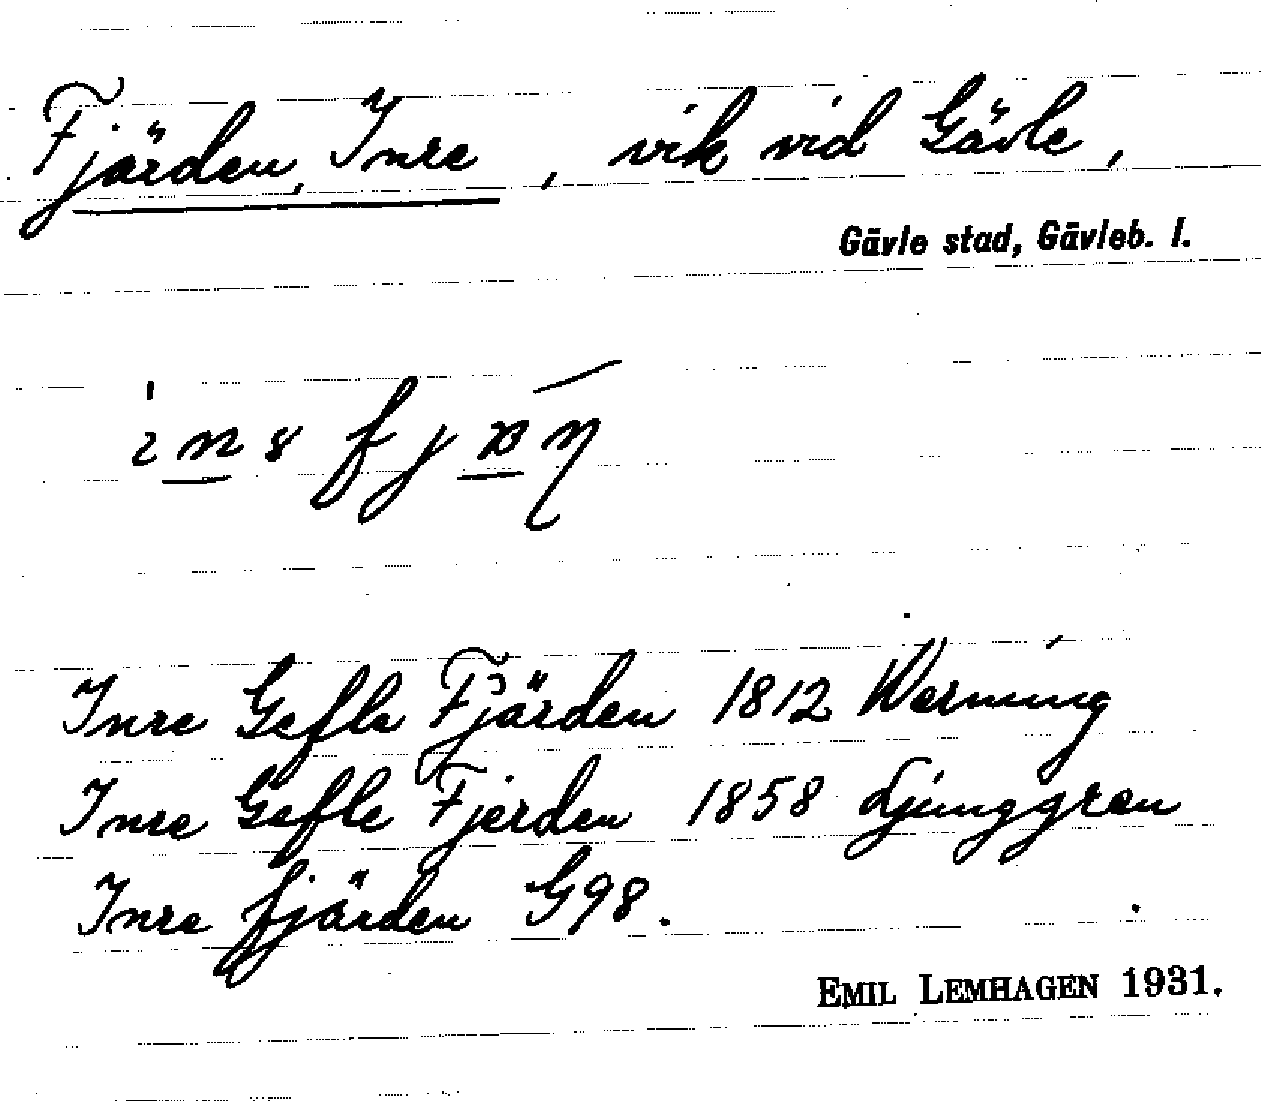 Fjärden, Inre, vik vid Gävle,
Gävle stad, Gävleb. l.
Inre Gefle Fjärden 1812 Werming
Inre Gefle Fjerden 1858 Ljunggren
Inre fjärden G98.
EMIL LEMHAGEN 1931.